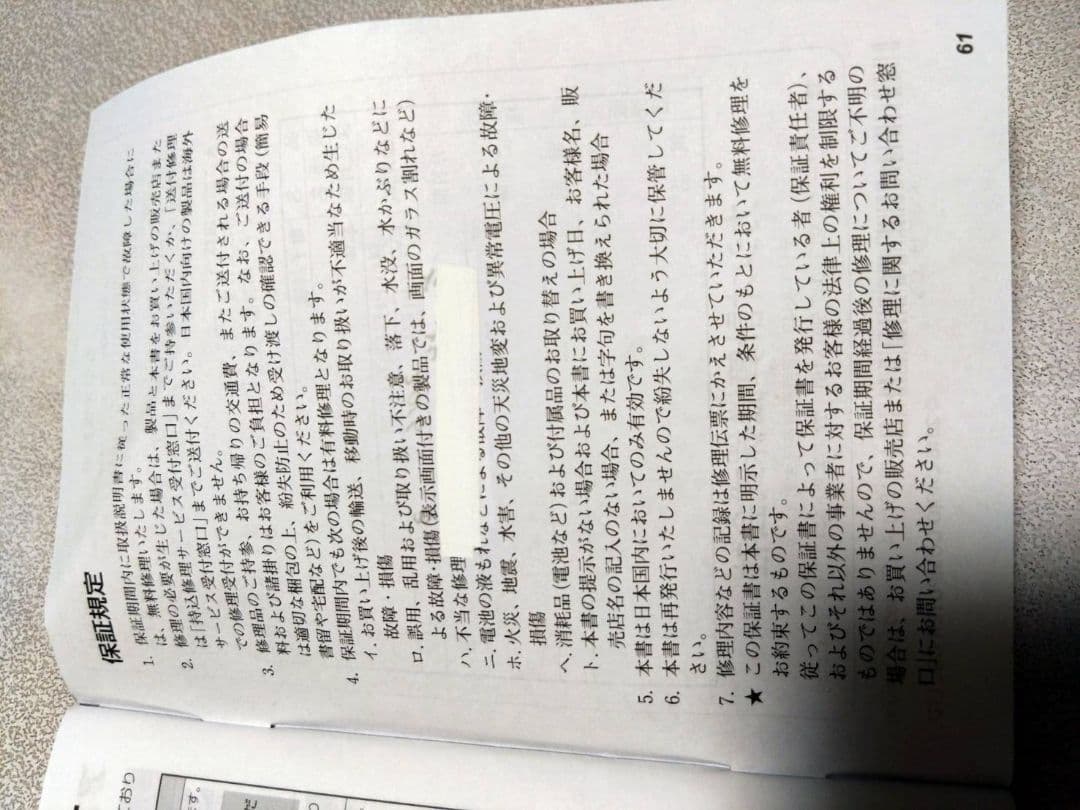 保証規定
1. 保証期間内に取扱説明書に従った正常な使用状態で故障した場合に
は、無料修理いたします。
2. 修理の必要が生じた場合は、製品と本書をお買い上げの販売店また
は「持込修理サービス受付窓口」までご持参いただくか、「送付修理
サービス受付窓口」までご送付ください。日本国内向けの製品は海外
での修理受付ができません。
3. 修理品のご持参、お持ち帰りの交通費、またご送付される場合の送
料および諸掛りはお客様のご負担となります。なお、ご送付の場合
は適切な梱包の上、紛失防止のため受け渡しの確認できる手段(簡易
書留や宅配など)をご利用ください。
4. 保証期間内でも次の場合は有料修理となります。
イ. お買い上げ後の輸送、移動時のお取り扱いが不適当なため生じた
故障・損傷
ロ. 誤用、乱用および取り扱い不注意、落下、水没、水かぶりなどに
よる故障・損傷(表示画面付きの製品では、画面のガラス割れなど)
ハ. 不当な修理
ニ. 電池の液もれなどによる
ホ. 火災、地震、水害、その他の天災地変および異常電圧による故障・
損傷
ヘ. 消耗品(電池など)および付属品のお取り替えの場合
ト. 本書の提示がない場合および本書にお買い上げ日、お客様名、販
売店名の記入のない場合、または字句を書き換えられた場合
5. 本書は日本国内においてのみ有効です。
6. 本書は再発行いたしませんので紛失しないよう大切に保管してくだ
さい。
7. 修理内容などの記録は修理伝票にかえさせていただきます。
★ この保証書は本書に明示した期間、条件のもとにおいて無料修理を
お約束するものです。
従ってこの保証書によって保証書を発行している者(保証責任者)、
およびそれ以外の事業者に対するお客様の法律上の権利を制限する
ものではありませんので、保証期間経過後の修理についてご不明の
場合は、お買い上げの販売店または「修理に関するお問い合わせ窓
口」にお問い合わせください。
61
おり
す。